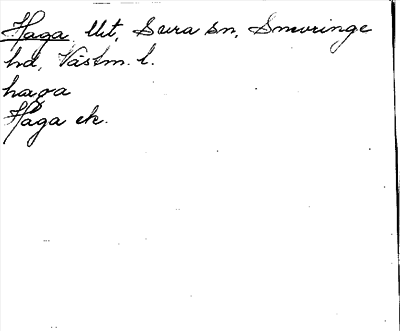 Haga Utt, Sura sn, Snevringe
hd, Västm. l.
haga
Haga ek.